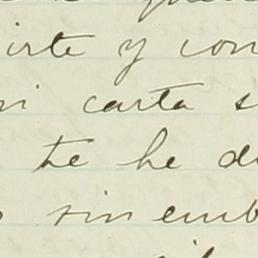 irte y con
carta s
te he di
sin emb